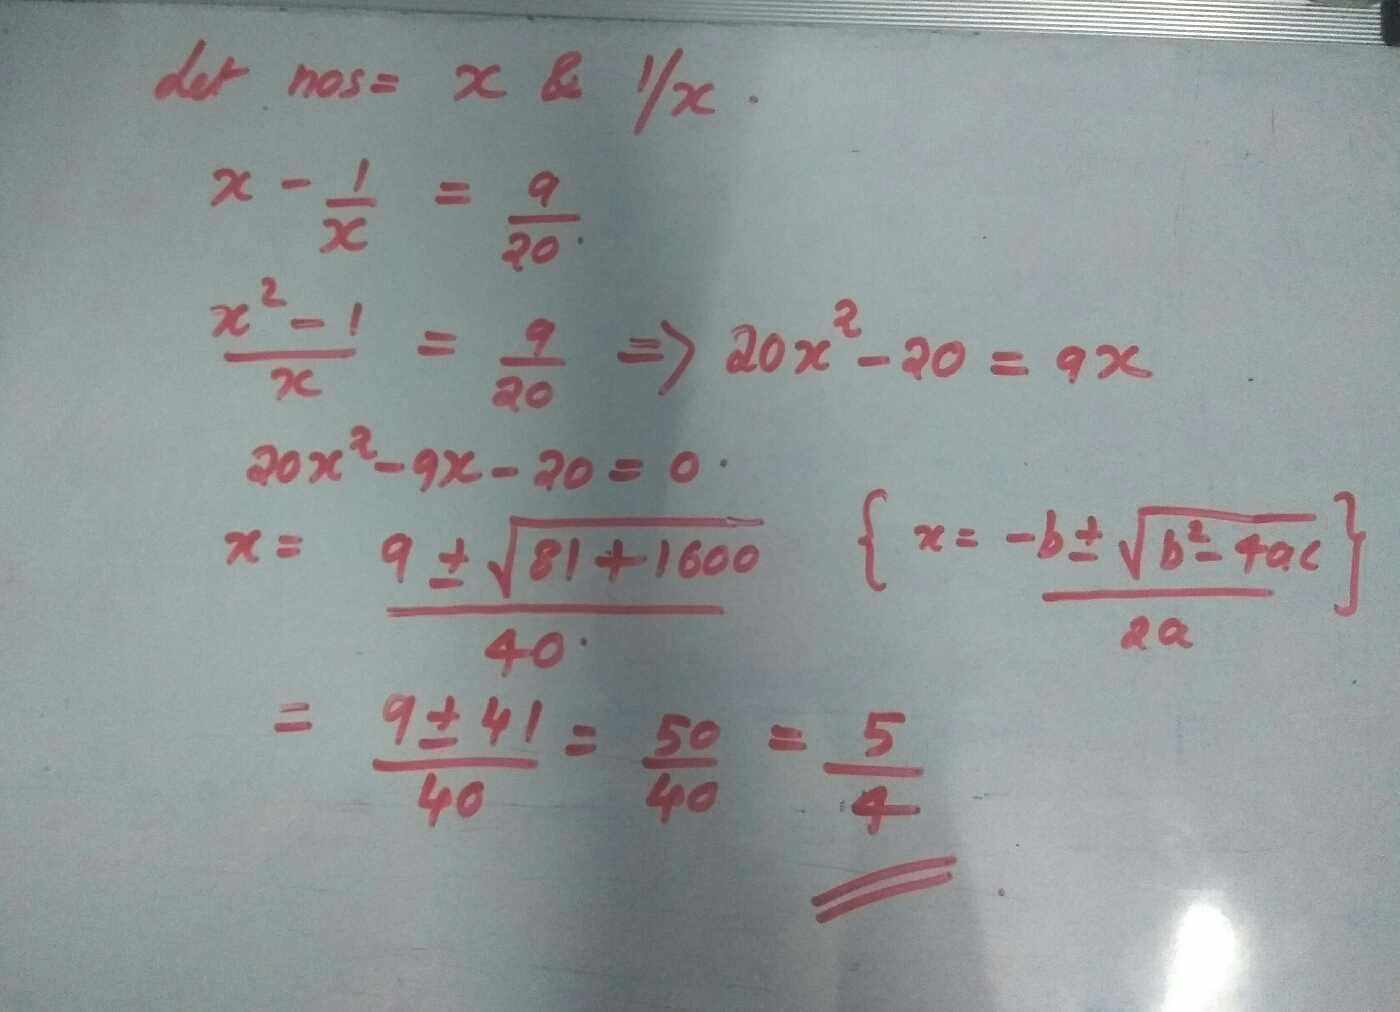 Let nos = x & 1/x .
x - 1/x = 9/20 .
(x² - 1)/x = 9/20 => 20x² - 20 = 9x
20x² - 9x - 20 = 0 .
x = (9 ± √(81 + 1600))/40 . { x = (-b ± √(b² - 4ac))/2a }
= (9 ± 41)/40 = 50/40 = 5/4